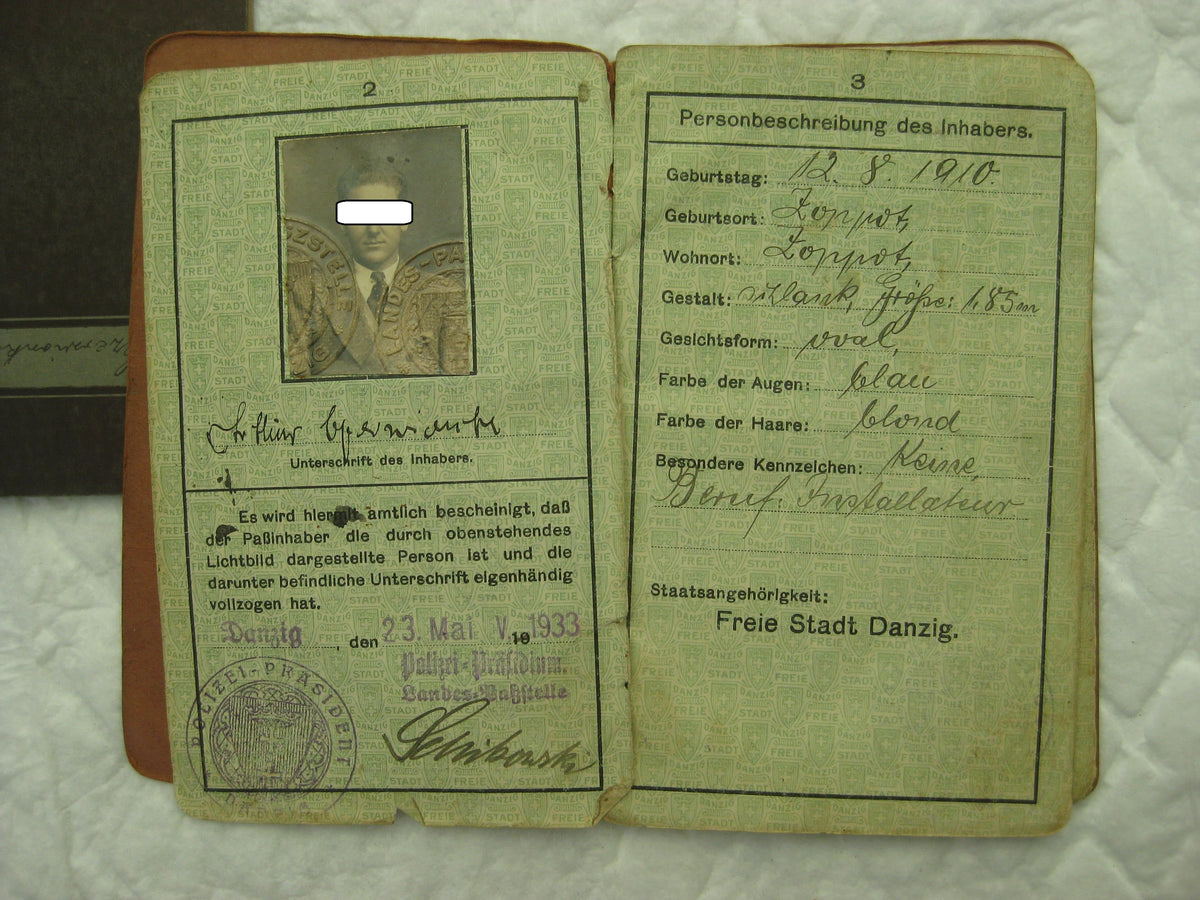 2
LANDES-PA
Arthur
Unterschrift des Inhabers.
Es wird hiermit amtlich bescheinigt, daß
der Paßinhaber die durch obenstehendes
Lichtbild dargestellte Person ist und die
darunter befindliche Unterschrift eigenhändig
vollzogen hat.
Danzig, den 23. Mai V. 19 1933
Polizei-Präsidium.
Landes-Paßstelle
POLIZEI-PRÄSIDENT
3
Personbeschreibung des Inhabers.
Geburtstag: 12. 8. 1910.
Geburtsort: Zoppot,
Wohnort: Zoppot,
Gestalt: schlank, Größe: 1,85 m
Gesichtsform: oval,
Farbe der Augen: blau
Farbe der Haare: blond
Besondere Kennzeichen: Keine,
Beruf: Installateur
Staatsangehörigkeit:
Freie Stadt Danzig.